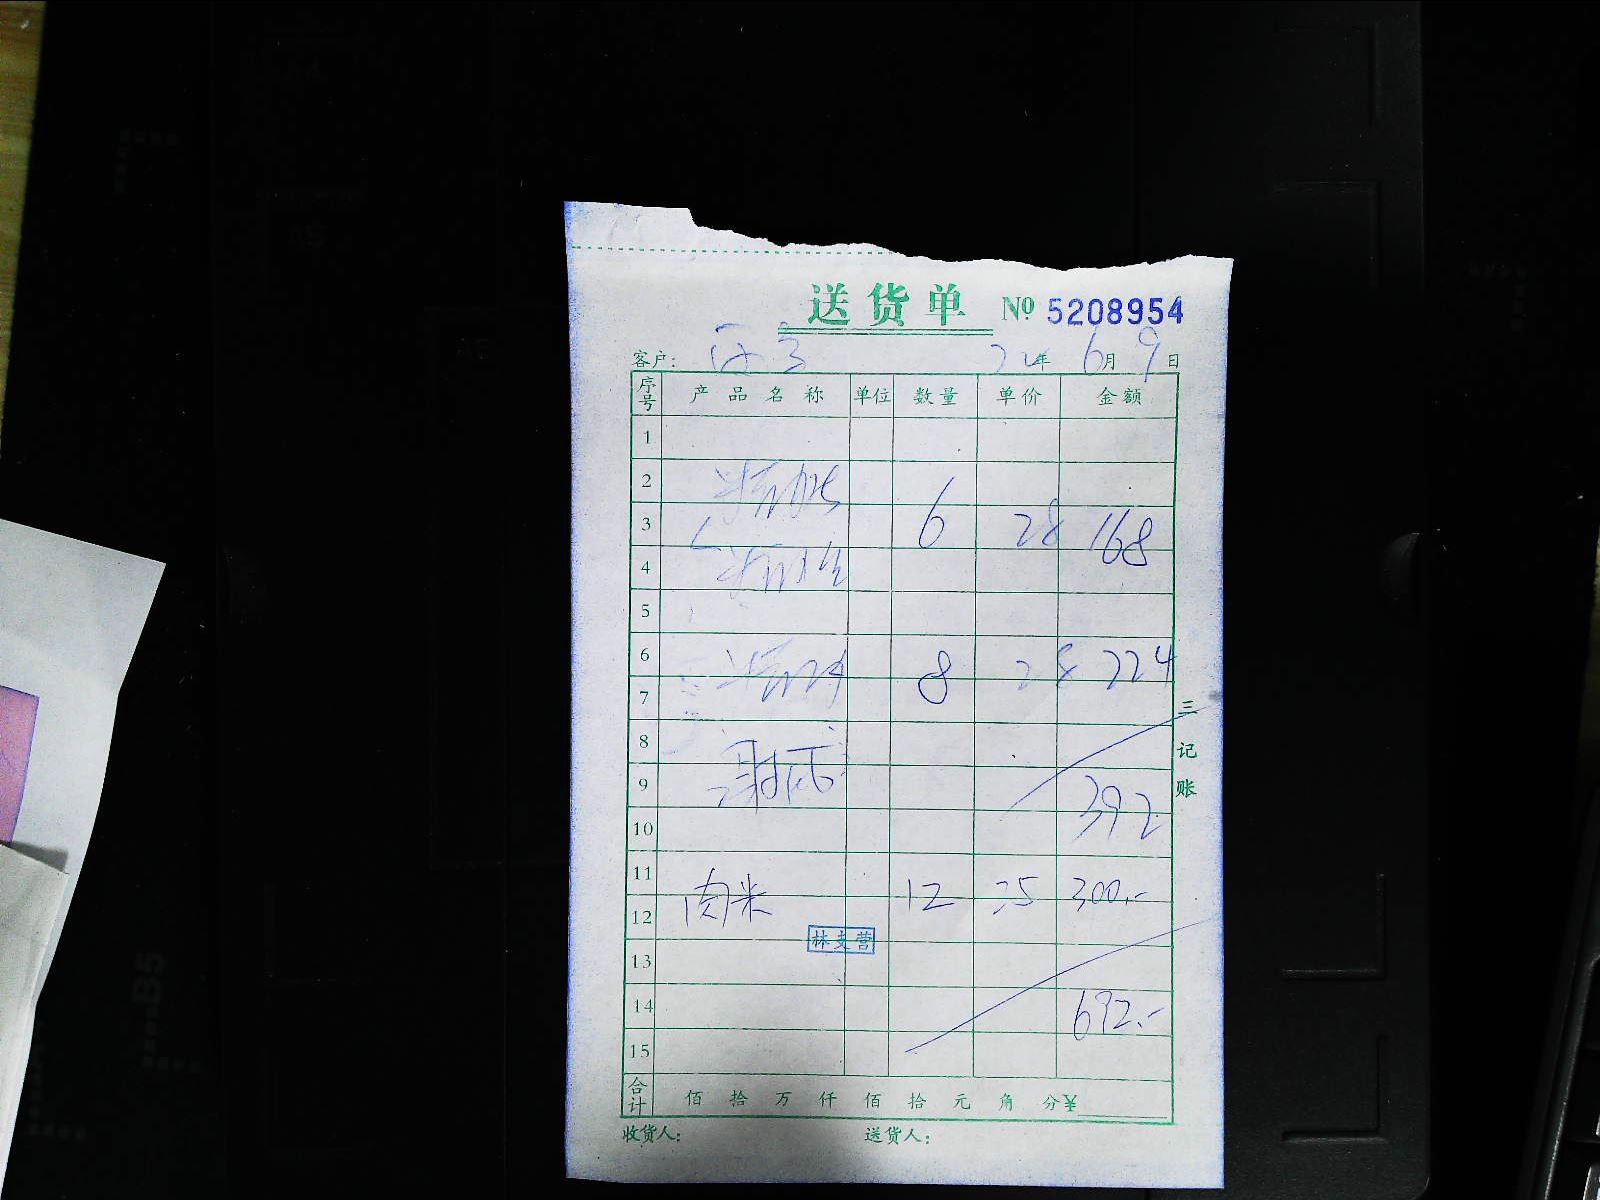 送货单 № 5208954
客户: 24年 6月 9日
序号 产品名称 单位 数量 单价 金额
1
2
3 6 28 168
4
5
6 8 28 224
7
8
9 392
10
11 肉米 12 25 300.-
12
林支营
13
14 692.-
15
合计 佰 拾 万 仟 佰 拾 元 角 分 ¥
收货人: 送货人:
三记账
A3
B5